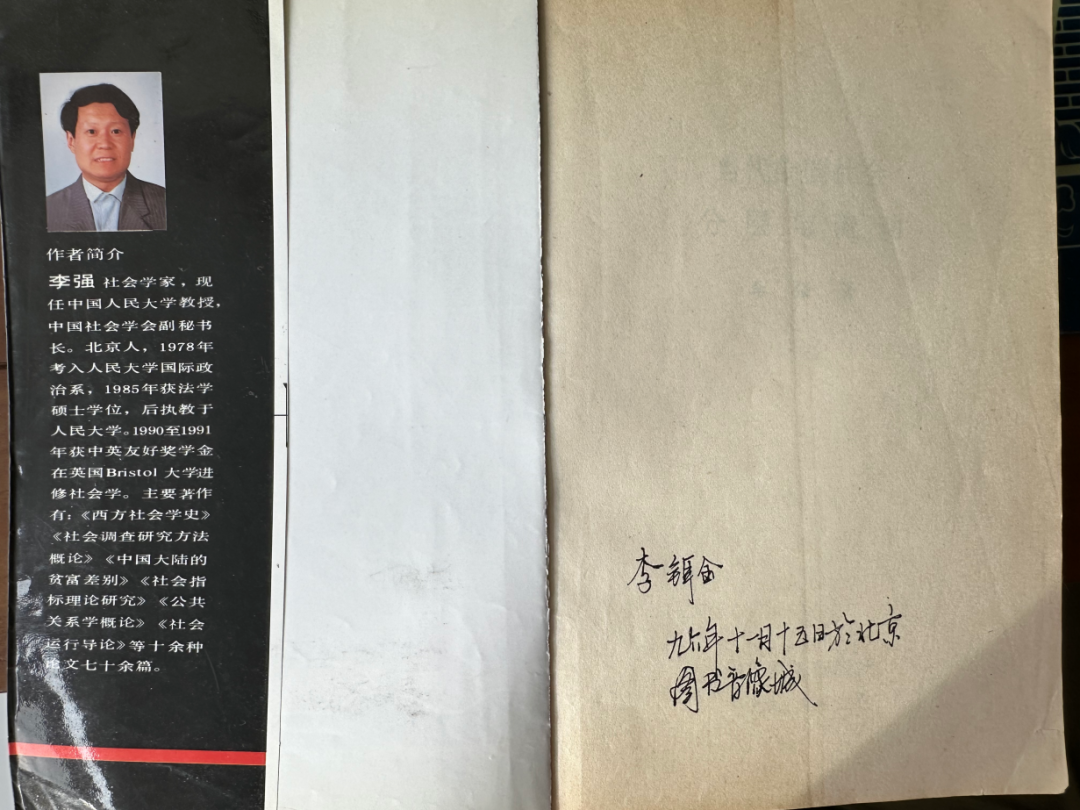 作者简介
李强 社会学家，现
任中国人民大学教授，
中国社会学会副秘书
长。北京人，1978年
考入人民大学国际政
治系，1985年获法学
硕士学位，后执教于
人民大学。1990至1991
年获中英友好奖学金
在英国Bristol 大学进
修社会学。主要著作
有：《西方社会学史》
《社会调查研究方法
概论》《中国大陆的
贫富差别》《社会指
标理论研究》《公共
关系学概论》《社会
运行导论》等十余种
论文七十余篇。
李锝金
九六年十一月十五日於北京
图书音像城